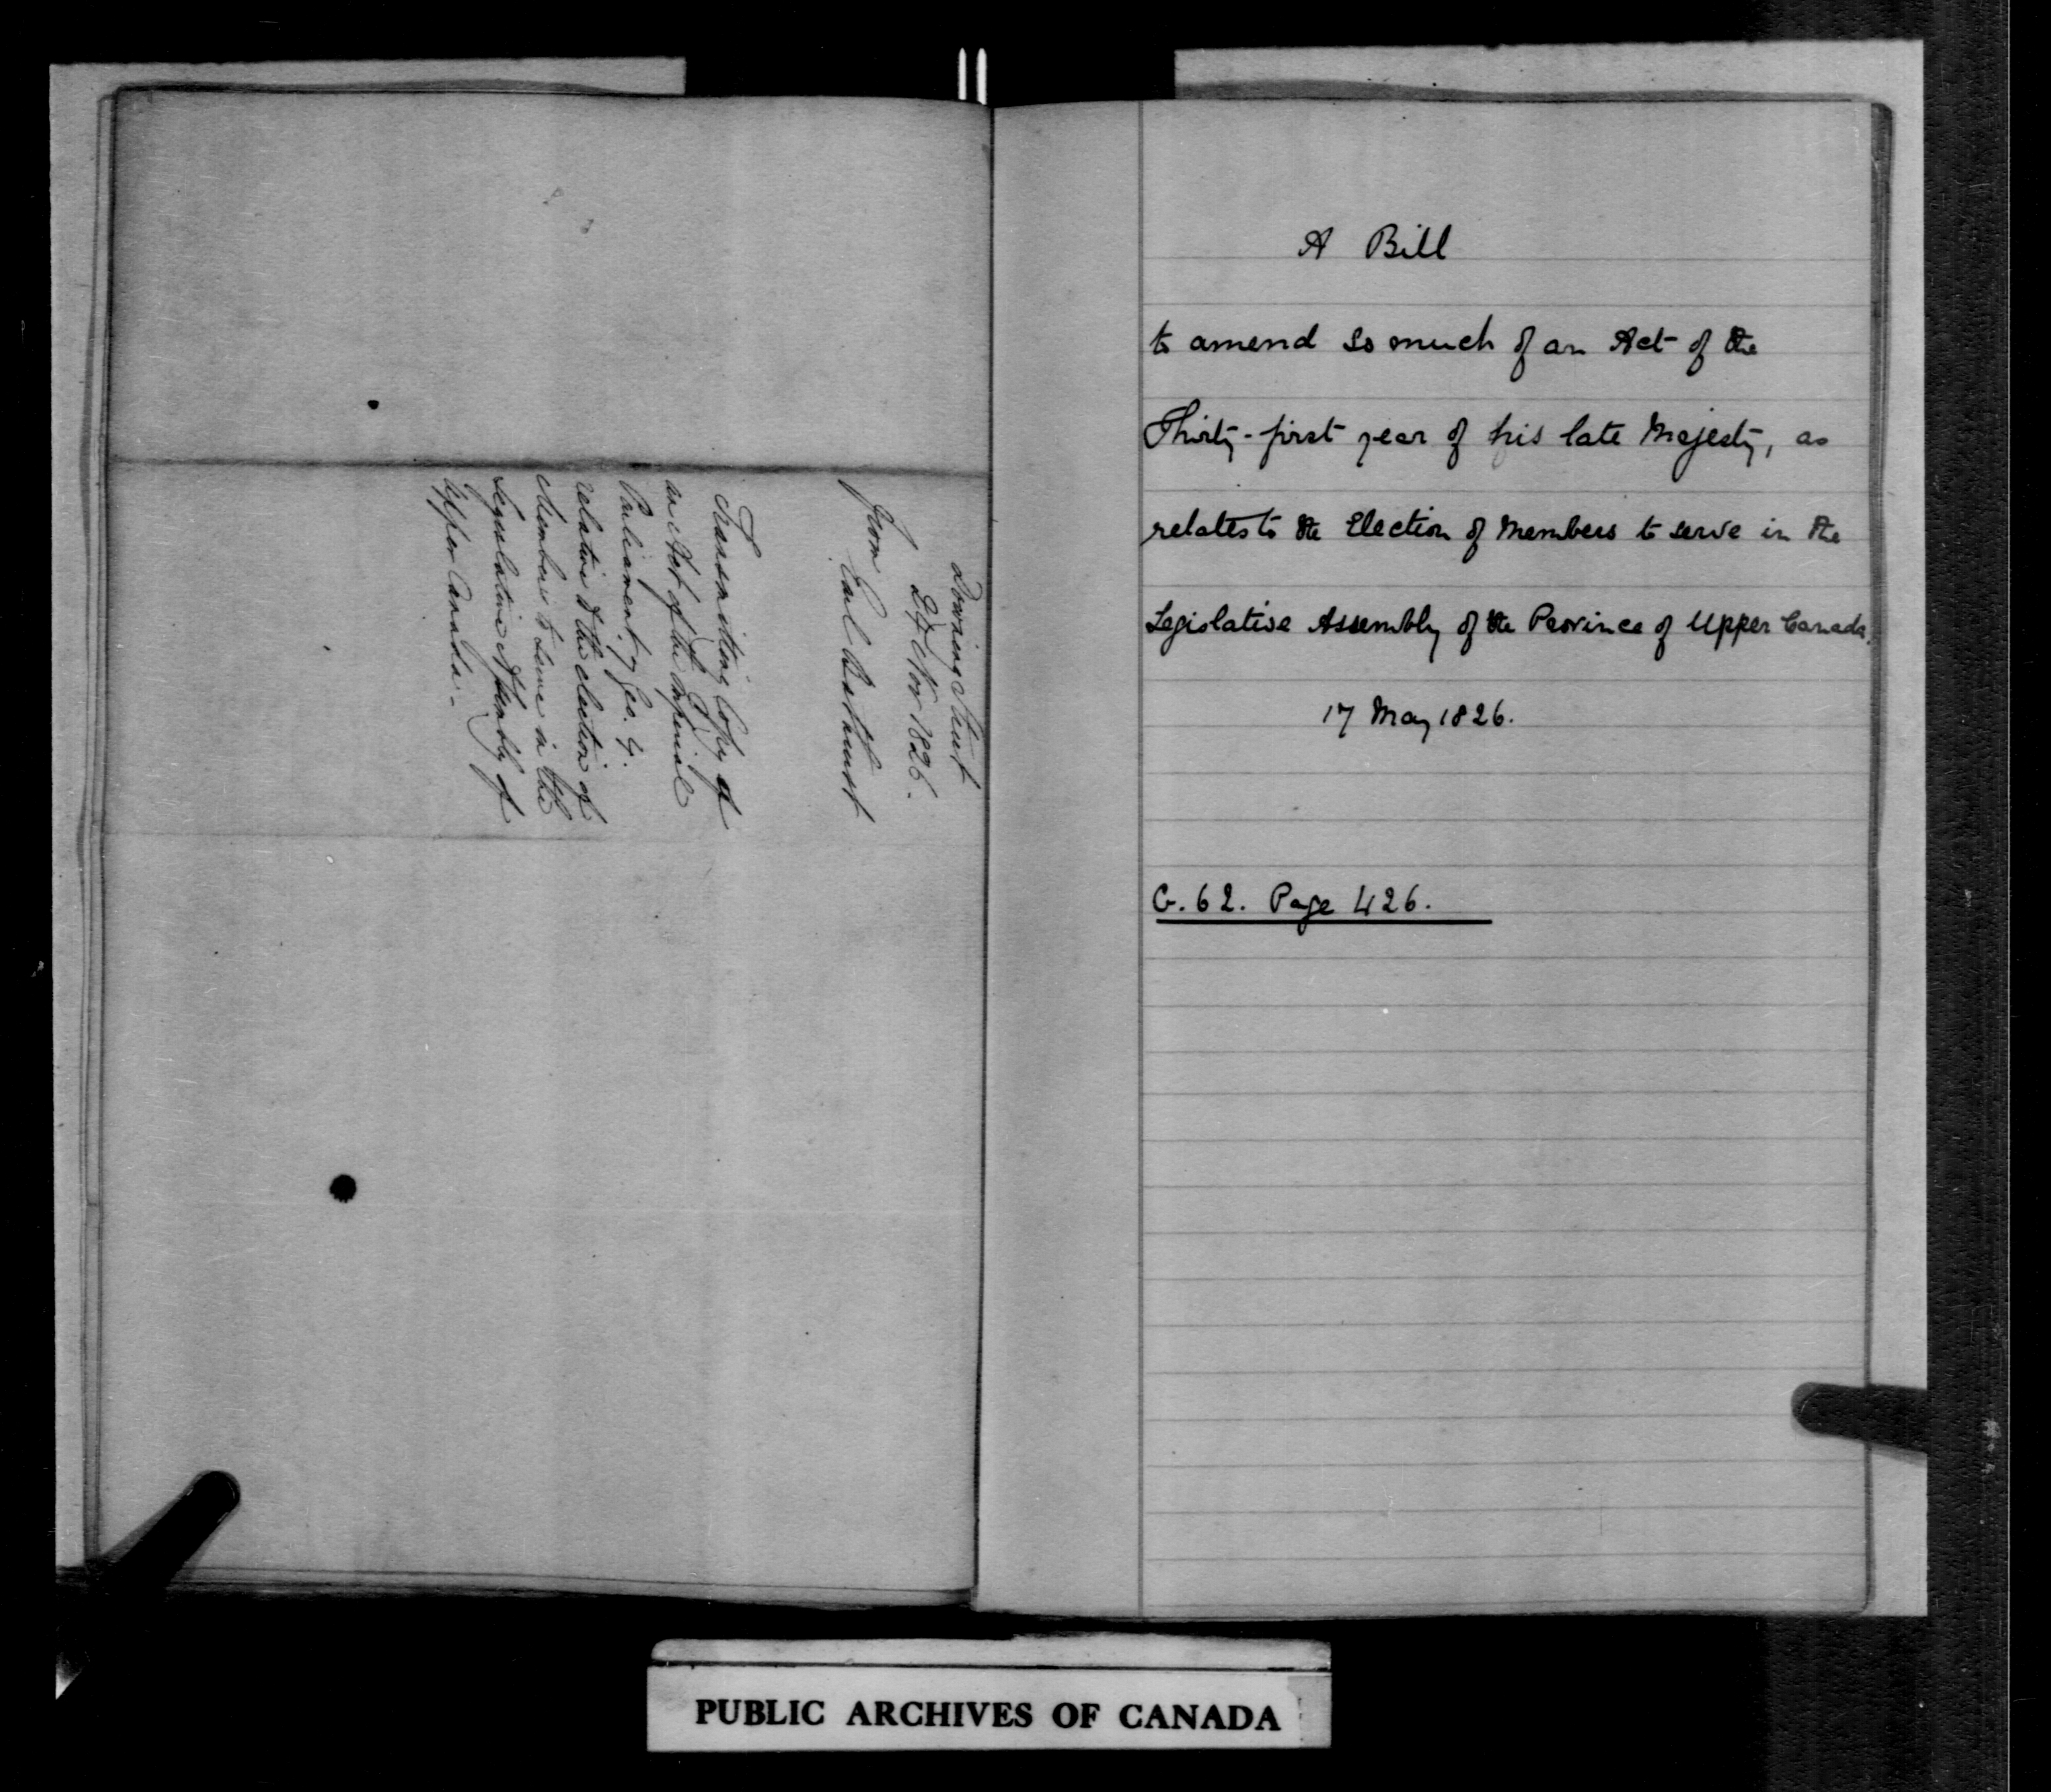 Downing Street
24 Nov 1826.
From
Earl Bathurst
Transmitting Copy of
an Act of the Imperial
Parliament 7 Geo. 4.
relative to the election of
Members to serve in the
Legislative Assembly of
Upper Canada.
A Bill
to amend so much of an Act of the
Thirty-first year of his late Majesty, as
relates to the Election of Members to serve in the
Legislative Assembly of the Province of Upper Canada.
17 May 1826.
G. 62. Page 426.
PUBLIC ARCHIVES OF CANADA